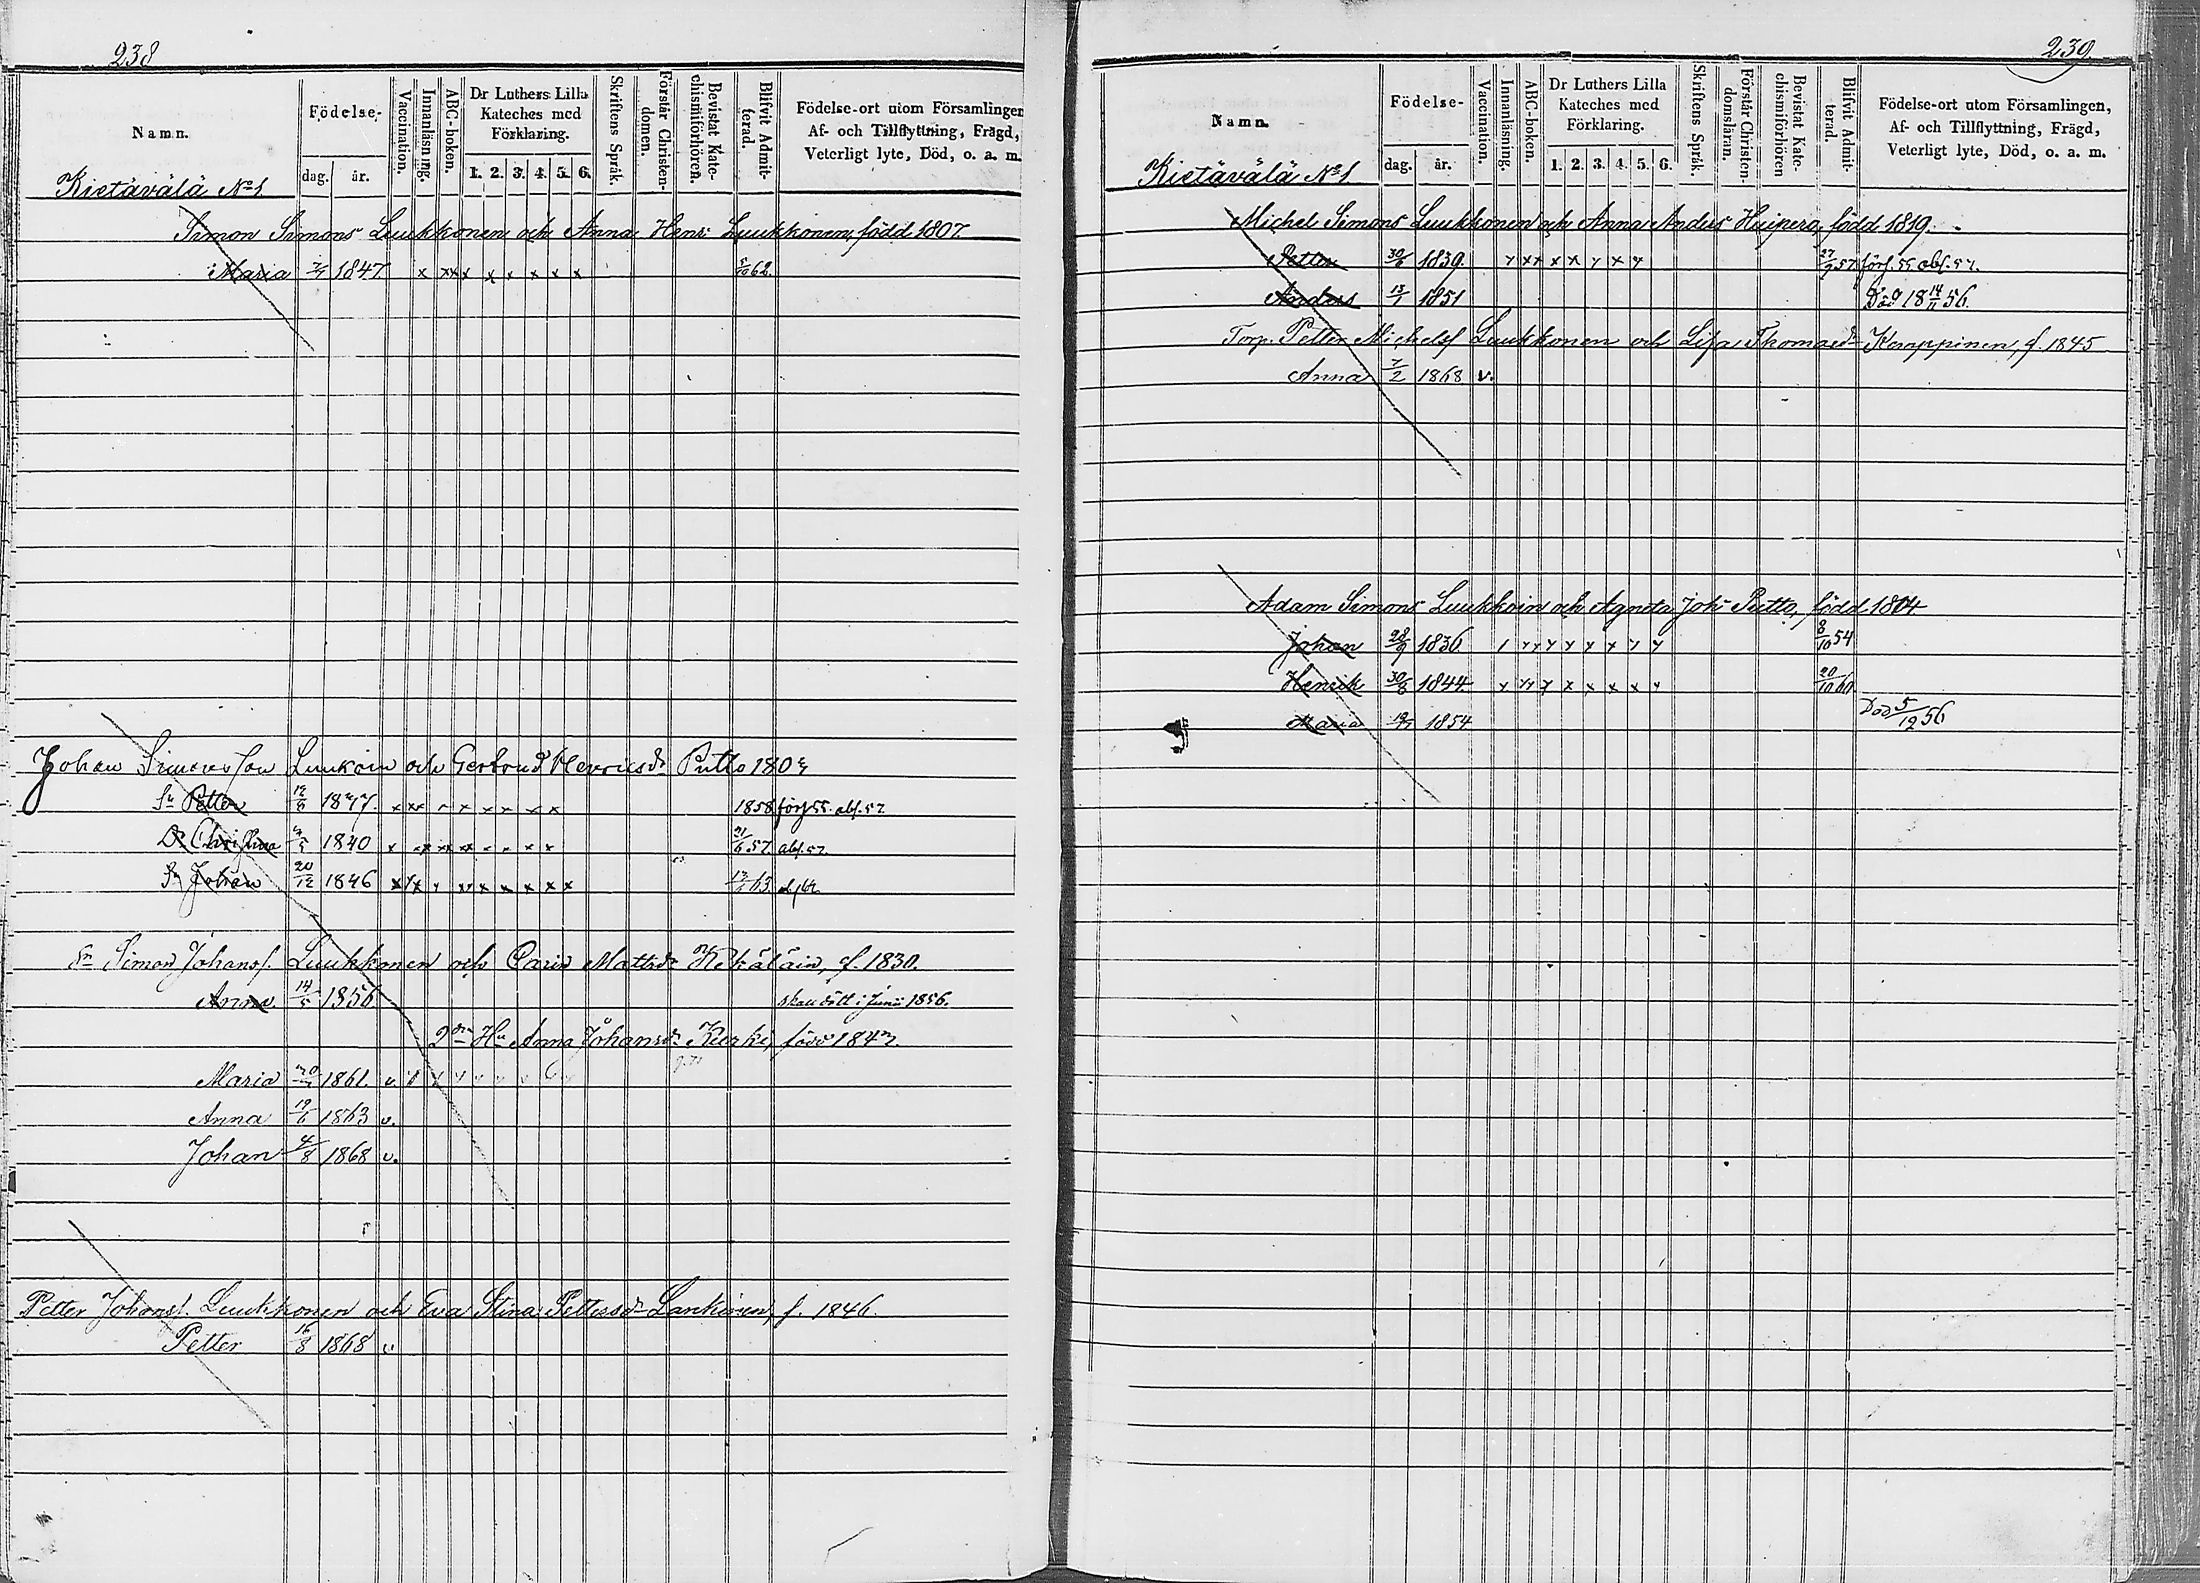 238
Namn.
Födelse-
dag. år.
Vaccination.
Innanläsning.
ABC-boken.
Dr Luthers Lilla Kateches med Förklaring.
1. 2. 3. 4. 5. 6.
Skriftens Språk.
Förstår Christendomen.
Bevistat Katechismiförhören.
Blifvit Admitterad.
Födelse-ort utom Församlingen
Af- och Tillflyttning, Frägd,
Veterligt lyte, Död, o. a. m.
Kietävälä No 1
Simon Simons Luukkonen och Anna Henr Luukkonen, född 1807.
Maria 1847. x xx x x x x x x 62.
Johan Simonsson Luukoin och Gertrud Henricsdr Putto
Sn Petter 1858 förf 55. abs. 57
Dr Christina 1840 57 abs. 57.
Sn Johan 20/12 1846 63
Sn Simon Johanss. Luukkonen och Carin Mattsdr Kekäläin, f. 1830.
Anna 14/5 1856 skall dött i Junii 1856.
2dra Hu Anna Johansdr född
Maria 1861. v
Anna 19/6 1863 v.
Johan 4/8 1868 v.
Petter Johanss. Luukkonen och Eva Stina Pettersdr Lankinen, f. 1846.
Petter 16/8 1868 v
239.
Namn.
Födelse-
dag. år.
Vaccination.
Innanläsning.
ABC-boken.
Dr Luthers Lilla Kateches med Förklaring.
1. 2. 3. 4. 5. 6.
Skriftens Språk.
Förstår Christendomsläran.
Bevistat Katechismiförhören
Blifvit Admitterad.
Födelse-ort utom Församlingen,
Af- och Tillflyttning, Frägd,
Veterligt lyte, Död, o. a. m.
Kietävälä No 1
Michel Simons Luukkonen och Anna Anders född 1819.
Petter 1839 27/9 57 förf. 55 abs. 57.
Anders 13/1 1851 Död 18 14/11 56.
Torp. Petter Michelss Luukkonen och Lisa Thomasdr Kamppinen, f. 1845
Anna 7/2 1868 v.
Adam Simons Luukkoin och Agneta Joh Putto, född 1804
Johan 28/9 1836 8/10 54
Henrik 30/8 1844 20/10 60
Maria 1854 Död 5/12 56